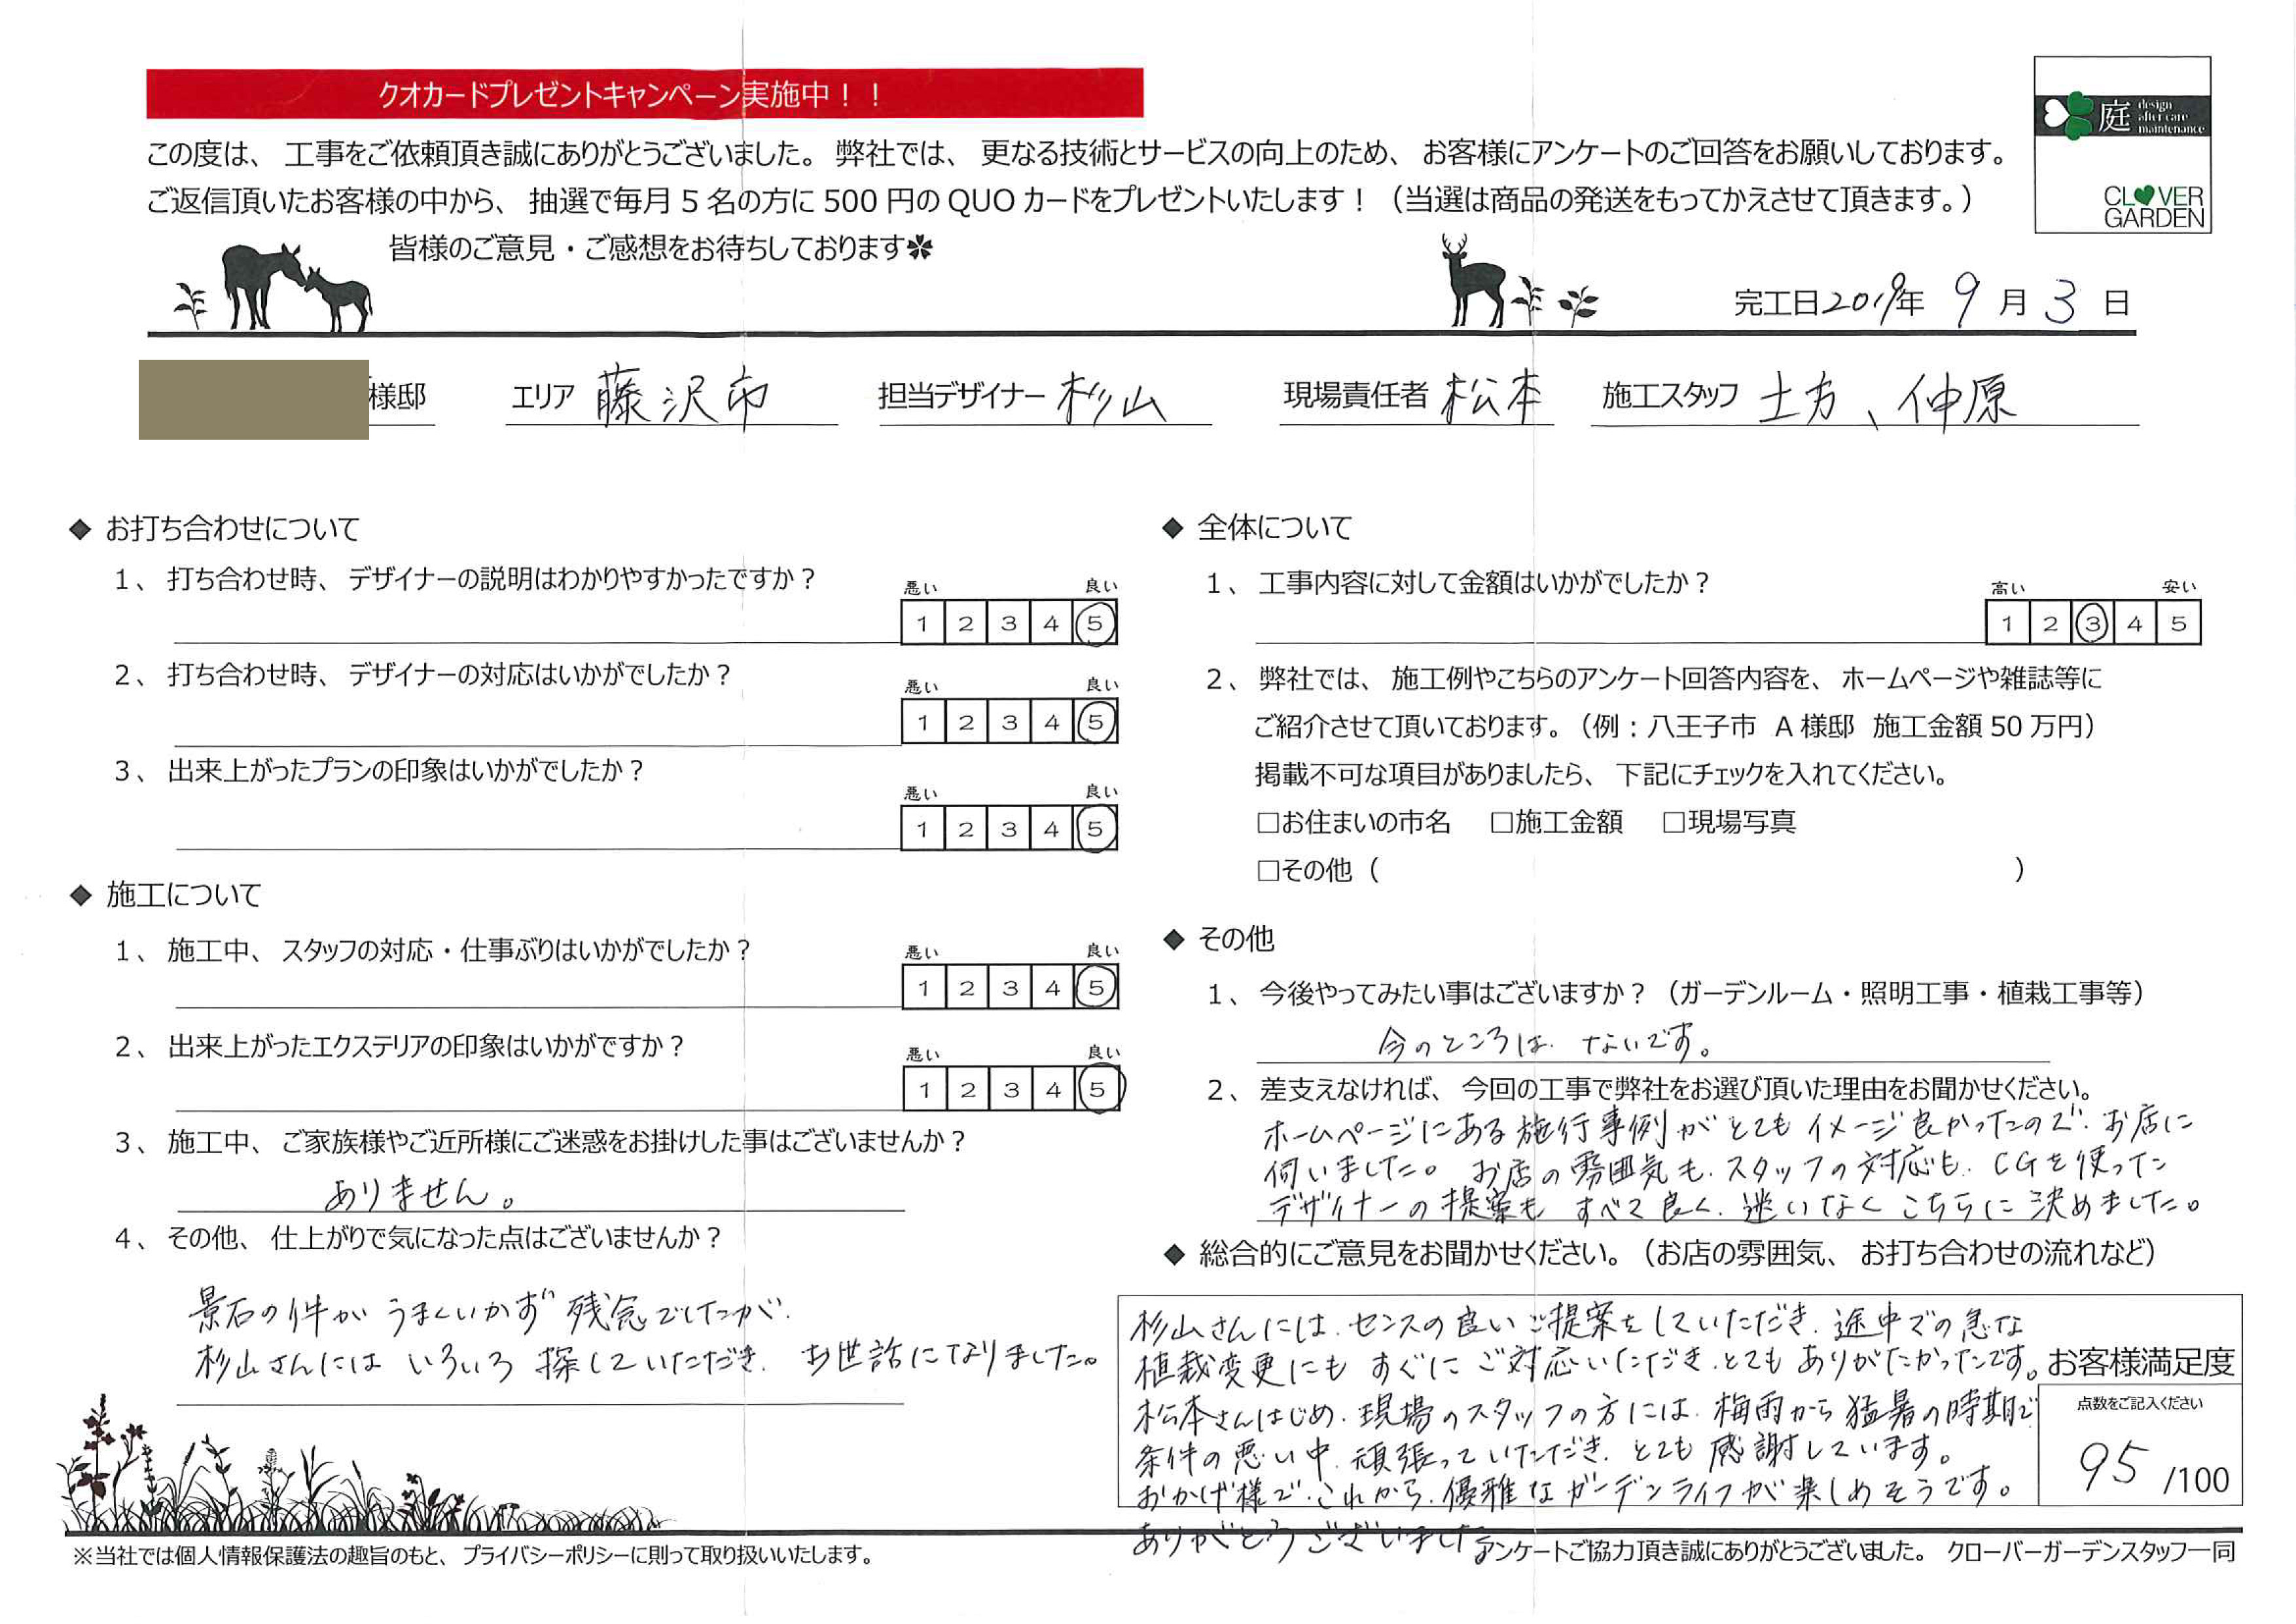 クオカードプレゼントキャンペーン実施中！！
庭 design after care maintenance
CLOVER GARDEN
この度は、工事をご依頼頂き誠にありがとうございました。弊社では、更なる技術とサービスの向上のため、お客様にアンケートのご回答をお願いしております。
ご返信頂いたお客様の中から、抽選で毎月5名の方に500円のQUOカードをプレゼントいたします！（当選は商品の発送をもってかえさせて頂きます。）
皆様のご意見・ご感想をお待ちしております✽
完工日2019年 9月 3日
様邸 エリア 藤沢市 担当デザイナー 杉山 現場責任者 松本 施工スタッフ 土方、仲原
◆ お打ち合わせについて
1、打ち合わせ時、デザイナーの説明はわかりやすかったですか？
悪い 良い
1 2 3 4 5
2、打ち合わせ時、デザイナーの対応はいかがでしたか？
悪い 良い
1 2 3 4 5
3、出来上がったプランの印象はいかがでしたか？
悪い 良い
1 2 3 4 5
◆ 施工について
1、施工中、スタッフの対応・仕事ぶりはいかがでしたか？
悪い 良い
1 2 3 4 5
2、出来上がったエクステリアの印象はいかがですか？
悪い 良い
1 2 3 4 5
3、施工中、ご家族様やご近所様にご迷惑をお掛けした事はございませんか？
ありません。
4、その他、仕上がりで気になった点はございませんか？
景石の件が うまくいかず 残念でしたが、
杉山さんには いろいろ 探していただき、お世話になりました。
◆ 全体について
1、工事内容に対して金額はいかがでしたか？
高い 安い
1 2 3 4 5
2、弊社では、施工例やこちらのアンケート回答内容を、ホームページや雑誌等に
ご紹介させて頂いております。（例：八王子市 A様邸 施工金額50万円）
掲載不可な項目がありましたら、下記にチェックを入れてください。
□お住まいの市名 □施工金額 □現場写真
□その他（ ）
◆ その他
1、今後やってみたい事はございますか？（ガーデンルーム・照明工事・植栽工事等）
今のところは、ないです。
2、差支えなければ、今回の工事で弊社をお選び頂いた理由をお聞かせください。
ホームページにある施行事例がとてもイメージ良かったので、お店に
伺いました。お店の雰囲気も、スタッフの対応も、CGを使った
デザイナーの提案も すべて良く、迷いなくこちらに決めました。
◆ 総合的にご意見をお聞かせください。（お店の雰囲気、お打ち合わせの流れなど）
杉山さんには、センスの良いご提案をしていただき、途中での急な
植栽変更にも すぐに ご対応いただき、とても ありがたかったです。
松本さんはじめ、現場のスタッフの方には、梅雨から猛暑の時期で
条件の悪い中、頑張っていただき、とても感謝しています。
おかげ様で、これから、優雅なガーデンライフが楽しめそうです。
ありがとうございました。
お客様満足度
点数をご記入ください
95 /100
※当社では個人情報保護法の趣旨のもと、プライバシーポリシーに則って取り扱いいたします。
アンケートご協力頂き誠にありがとうございました。クローバーガーデンスタッフ一同